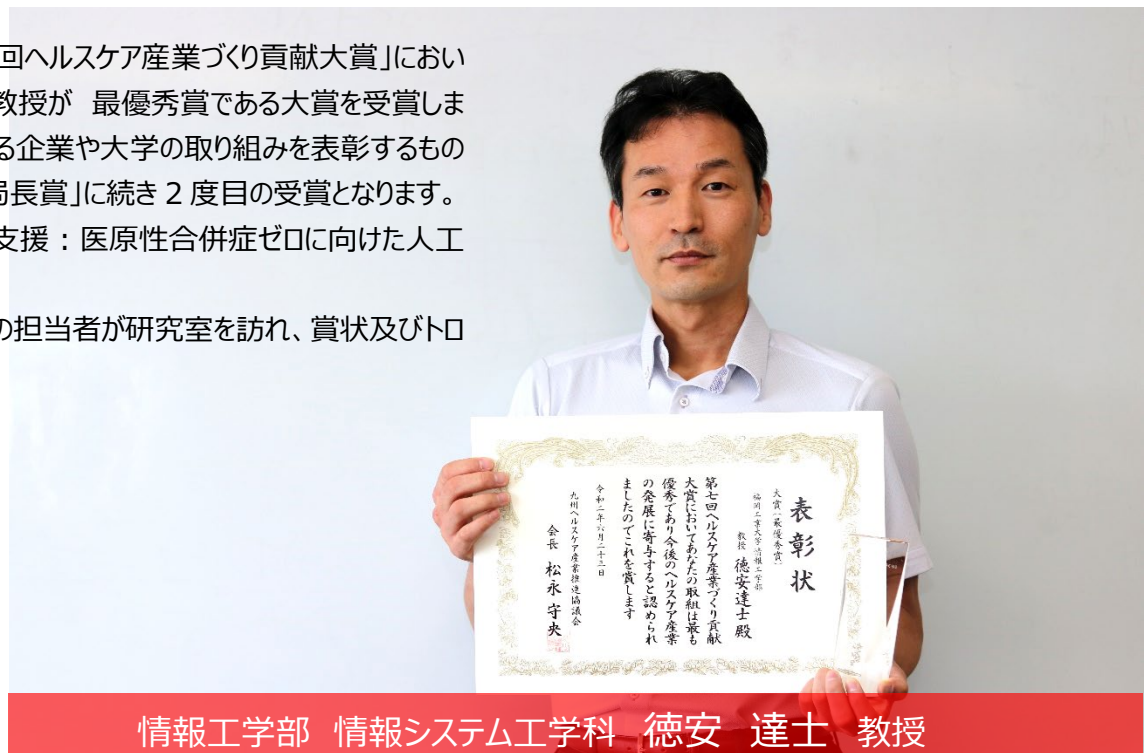 回ヘルスケア産業づくり貢献大賞」におい
教授が 最優秀賞である大賞を受賞しま
る企業や大学の取り組みを表彰するもの
局長賞」に続き 2 度目の受賞となります。
支援：医原性合併症ゼロに向けた人工
の担当者が研究室を訪れ、賞状及びトロ
表彰状
大賞(最優秀賞)
福岡工業大学情報工学部
教授 徳安達士殿
第七回ヘルスケア産業づくり貢献
大賞においてあなたの取組は最も
優秀であり今後のヘルスケア産業
の発展に寄与すると認められ
ましたのでこれを賞します
令和二年六月二十三日
九州ヘルスケア産業推進協議会
会長 松永守央
情報工学部 情報システム工学科 徳安 達士 教授